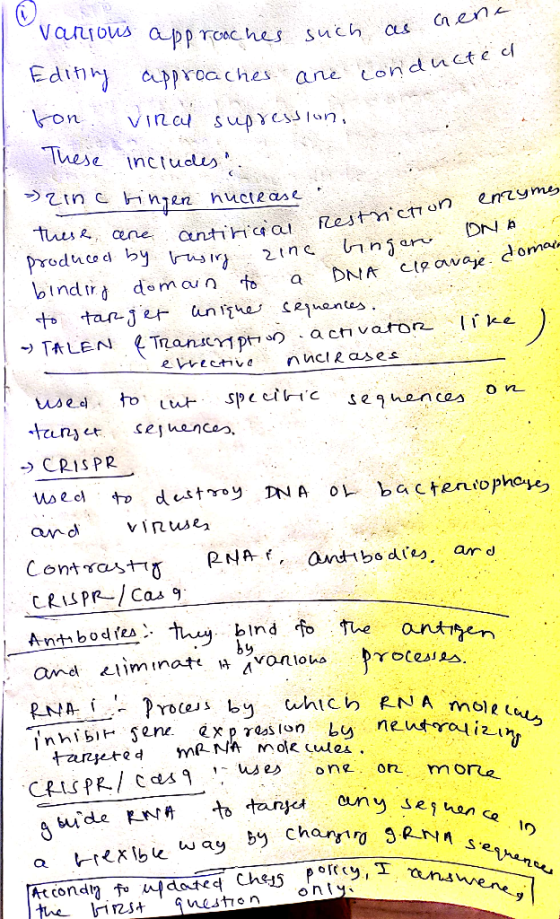 (i)
Various approaches such as Gene
Editing approaches are conducted
for viral supression.
These includes :
→ zinc finger nuclease :
these are artificial restriction enzymes
produced by fusing zinc finger DNA
binding domain to a DNA cleavage domain
to target unique sequences.
→ TALEN (Transcription activator like
effective nucleases)
used to cut specific sequences or
target sequences.
→ CRISPR
used to destroy DNA of bacteriophages
and viruses
Contrasting RNA i, antibodies, and
CRISPR / Cas 9
Antibodies :- they bind to the antigen
and eliminate it by various processes.
RNA i :- Process by which RNA molecules
inhibit gene expression by neutralizing
targeted mRNA molecules.
CRISPR / Cas 9 :- uses one or more
guide RNA to target any sequence in
a flexible way by changing gRNA sequences
According to updated Chegg policy, I answered
the first question only.